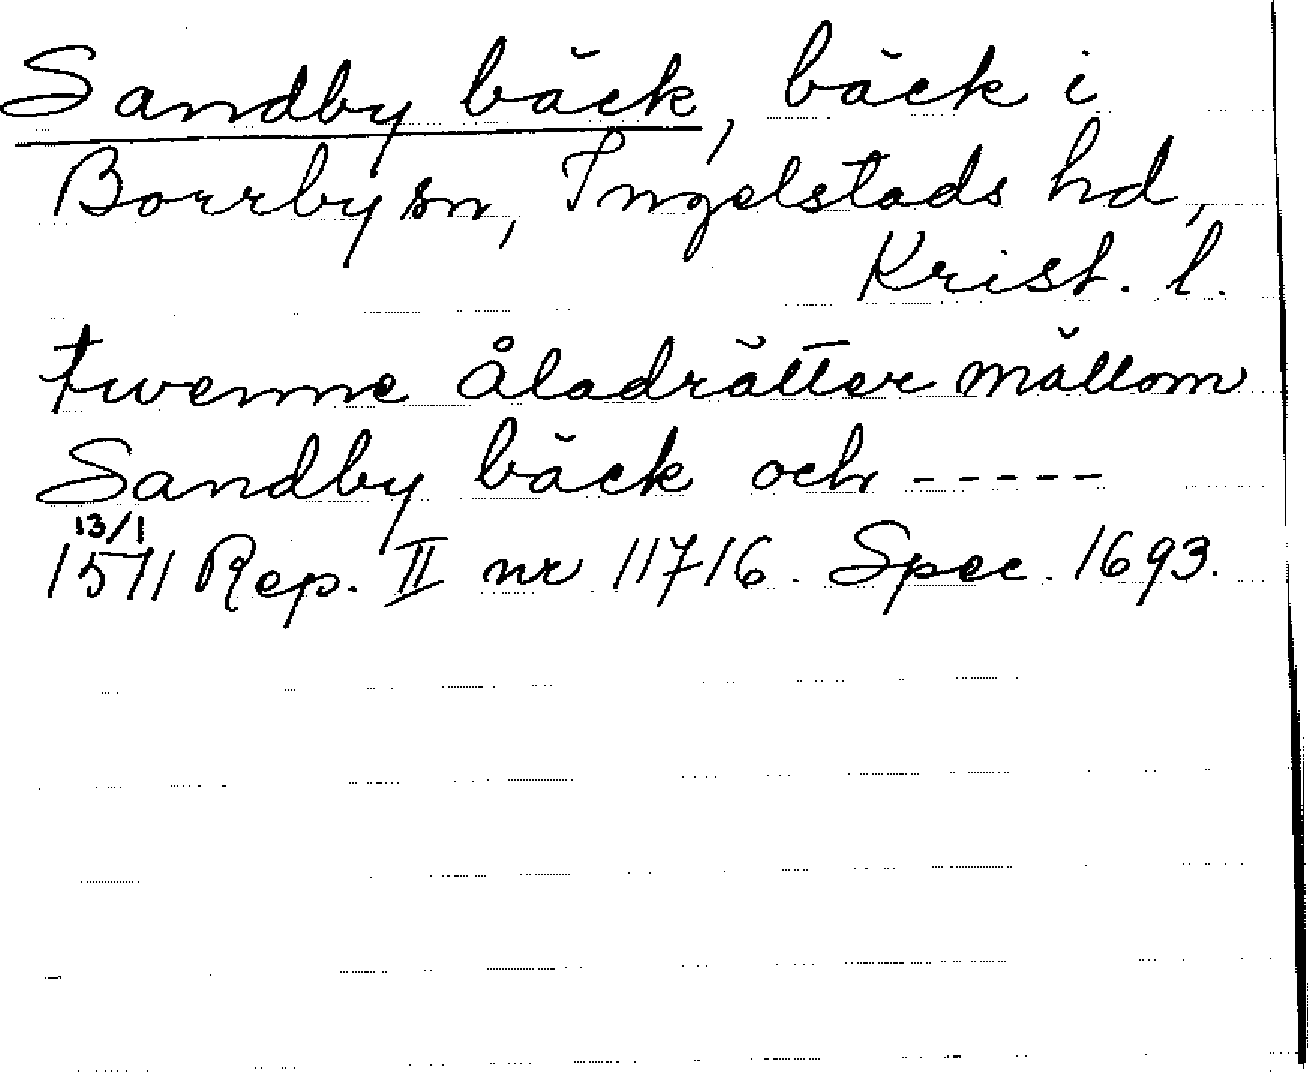 Sandby bäck, bäck i
Borrby sn, Ingelstads hd,
Krist. l.
twenne åladrätter mällom
Sandby bäck och -----
13/1
1571 Rep. II nr 11716. Spec. 1693.